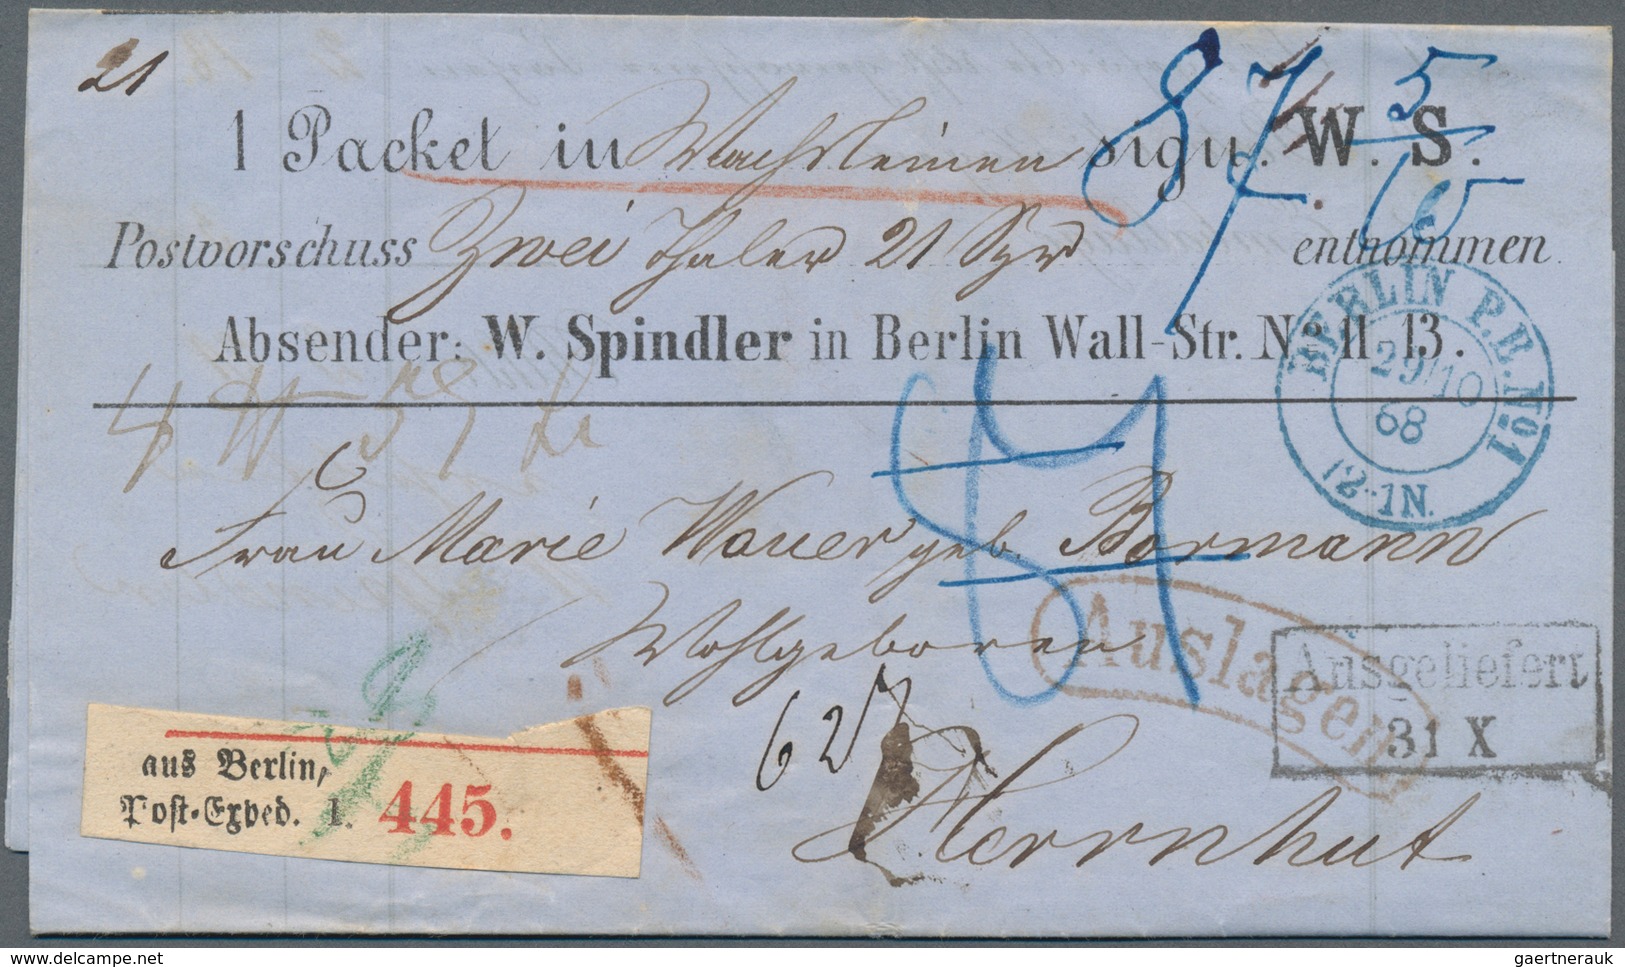 21
1 Packet in Wachsleinen sign. W. S.
87 5/10
Postvorschuss Zwei Thaler 21 Sgr entnommen.
Absender: W. Spindler in Berlin Wall-Str. No 11-13.
BERLIN P.E. No 1
29/10
68
12-1N.
87
Frau Marie Wauer geb. Bormann
Wohlgeboren
Auslagen
Ausgeliefert
31 X
627
Herrnhut
aus Berlin,
Post-Exped. 1. 445.
hipstamp.com
gaertnerauk